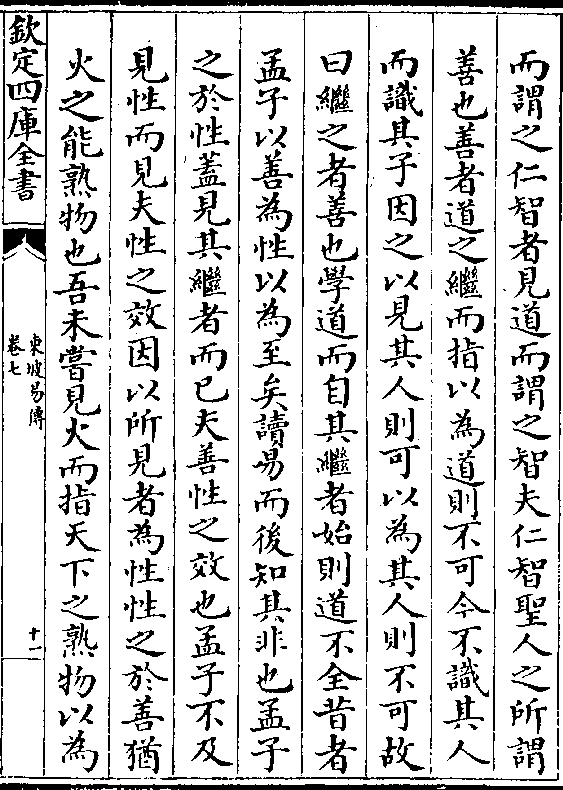 而謂之仁智者見道而謂之智夫仁智聖人之所謂
善也善者道之繼而指以為道則不可今不識其人
而識其子因之以見其人則可以為其人則不可故
曰繼之者善也學道而自其繼者始則道不全昔者
孟子以善為性以為至矣讀易而後知其非也孟子
之於性蓋見其繼者而已夫善性之效也孟子不及
見性而見夫性之效因以所見者為性性之於善猶
火之能熟物也吾未嘗見火而指天下之熟物以為
欽定四庫全書
東坡易傳
卷七
十一